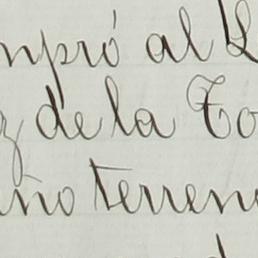 mpró al
de la To
ño terreno